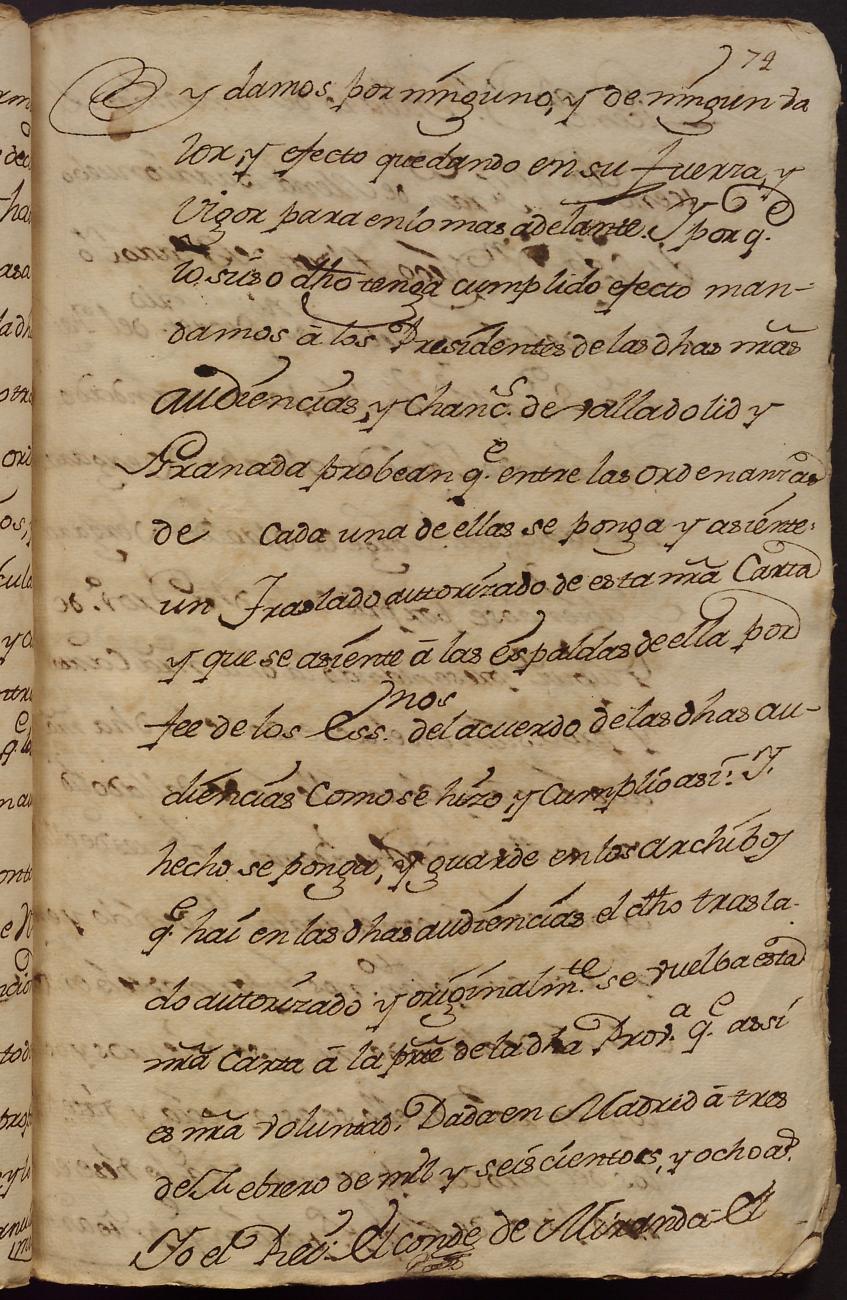 74
y damos por ninguno, y de ningun va
lor, y efecto quedando en su fuerza, y
vigor para en lo mas adelante. Y por q.e
lo suso dho tenga cumplido efecto man-
damos á los Presidentes de las dhas nr̃as
audiencias, y Chanc.s de valladolid y
Granada probean q.e entre las ordenanzas
de cada una de ellas se ponga y asiente
un Traslado autorizado de esta nr̃a Carta
y que se asiente á las espaldas de ella por
fee de los Ess.nos del acuerdo de las dhas au-
diencias como se hizo y cumplio asi: Y
hecho se ponga, y guarde en los archibos
q.e hai en las dhas audiencias el dho trasla-
do autorizado y originalm.te se vuelba esta
nr̃a carta á la pr̃te de la dha Prov.a q.e assi
es nr̃a voluntad. Dada en Madrid á tres
de Febrero de mil y seiscientos, y ocho a.s
Yo el Rey. El conde de Miranda El